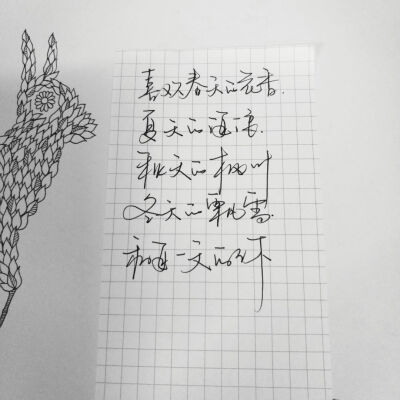 喜欢春天的花香.
夏天的海滨.
秋天的枫叶
冬天的飘雪.
和每一天的你